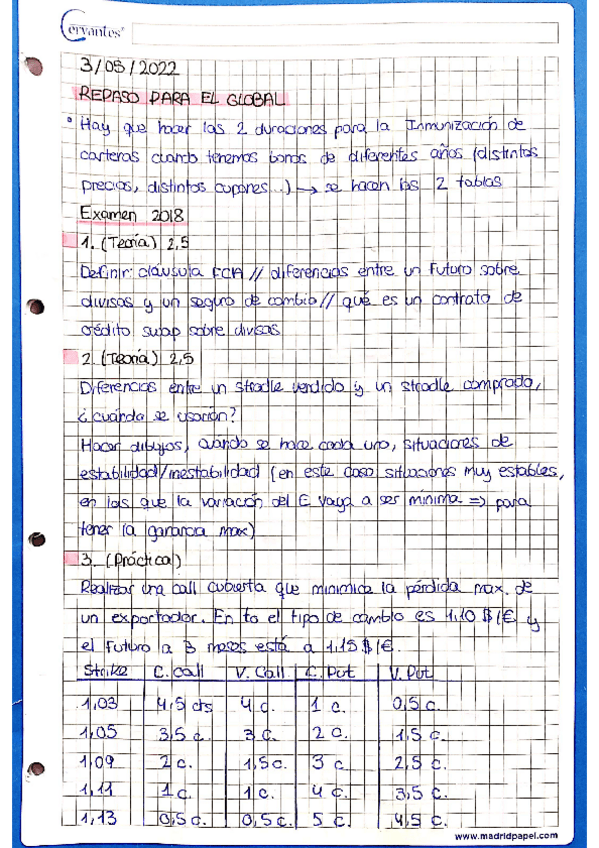 Cervantes
3/05/2022
REPASO PARA EL GLOBAL
° Hay que hacer las 2 duraciones para la Inmunización de
carteras cuando tenemos bonos de diferentes años (distintos
precios, distintos cupones...) → se hacen las 2 tablas
Examen 2018
1. (Teoría) 2,5
Definir: cláusula FCA // diferencias entre un futuro sobre
divisas y un seguro de cambio // qué es un contrato de
crédito swap sobre divisas
2. (Teoría) 2,5
Diferencias entre un stradle vendido y un stradle comprado,
¿cuándo se usarían?
Hacer dibujos, cuándo se hace cada uno, situaciones de
estabilidad/inestabilidad (en este caso situaciones muy estables,
en las que la variación del E vaya a ser mínima => para
tener la ganancia max)
3. (Práctica)
Realizar una call cubierta que minimice la pérdida max. de
un exportador. En t0 el tipo de cambio es 1,10 $/€ y
el futuro a 3 meses está a 1,15 $/€.
Strike C. Call V. Call C. Put V. Put
1,03 4,5 cts 4 c. 1 c. 0,5 c.
1,05 3,5 c. 3 c. 2 c. 1,5 c.
1,09 2 c. 1,5 c. 3 c 2,5 c.
1,11 1 c 1 c. 4 c 3,5 c.
1,13 0,5 c. 0,5 c. 5 c. 4,5 c.
www.madridpapel.com